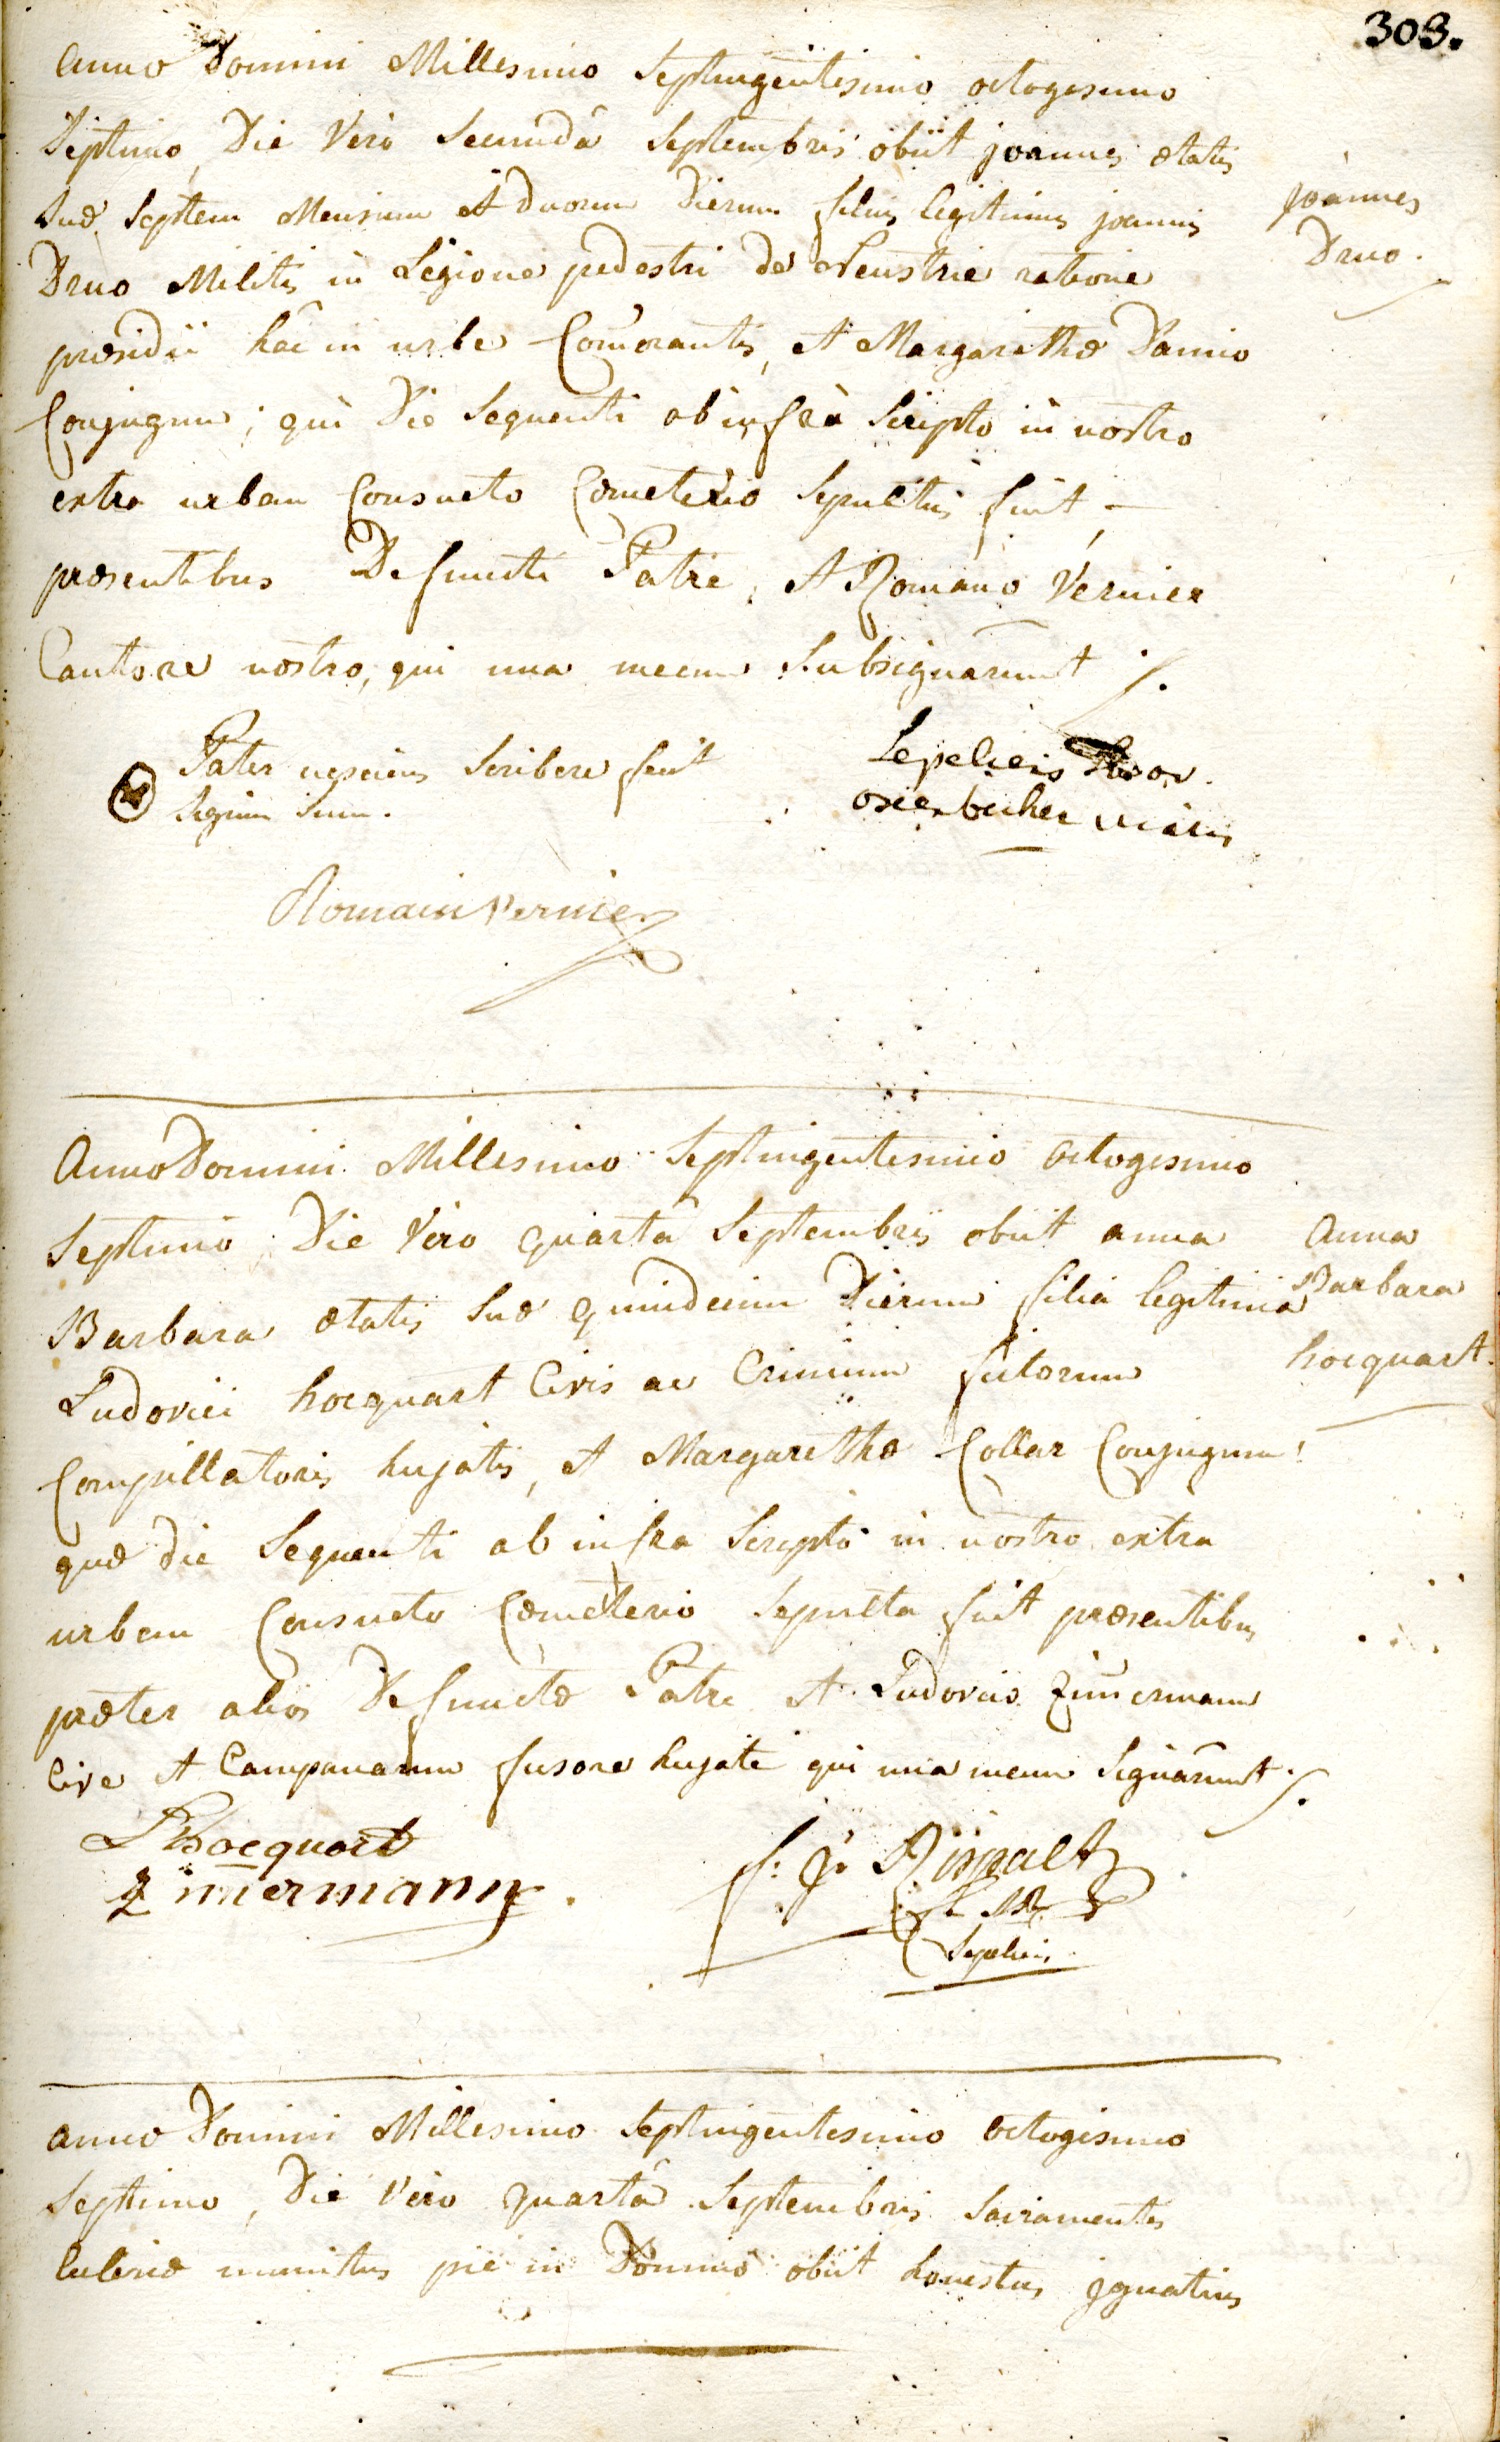 303.
Anno Domini Millesimo Septingentesimo octogesimo
Septimo, Die Vero Secundâ Septembris obiit joannes ætatis
Suæ Septem Mensium et duorum Dierum filius legitimus joannis
joannes
Druo Militis in Legione pedestri de Neustrie ratione
Druo.
præsidii hâc in urbe Com̄orantis, et Margarithæ Damio
Conjugum; qui Die Sequenti ab infrà Scripto in nostro
extra urbem Consueto Cœmeterio Sepultus fuit,
præsentibus Defuncti Patre, et Romano Vernier
Cantore nostro, qui una mecum Subsignarunt ./.
Pater nesciens Scribere fecit
Signum Suum.
osterbecker vicarius
Romain vernier
Anno Domini Millesimo Septingentesimo octogesimo
Septimo, Die Vero quartâ Septembris obiit anna
Anna
Barbara ætatis Suæ quindecim Dierum filia legitima
Barbara
Ludovici hocquart Civis ac Crinium sutorum
hocquart.
Compillatoris hujatis, et Margarethæ Collar Conjugum:
quæ die Sequenti ab infra Scripto in nostro extra
urbem Consueto Cœmeterio Sepulta fuit præsentibus
præter alios Defunctæ Patre et Ludovico Zim̄ermann
Cive et Campanarum fusore hujate qui una mecum Signarunt ./.
L hocquart
Zim̄ermann.
f: j:
anno Domini Millesimo Septingentesimo octogesimo
Septimo, Die Vero quartâ Septembris Sacramentis
Ecclesiæ munitus piè in Domino obiit honestus jgnatius